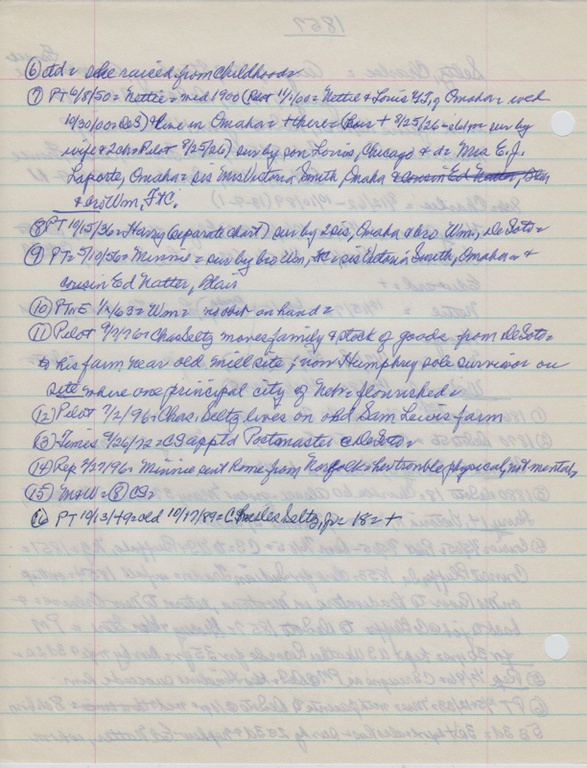 ⑥ etd = she raised from childhood =
⑦ PT 6/8/50 = Nettie = med 1900 (Pilot 11/1/00 = Nettie & Louis GJ, g Omaha = wed
10/30/00 = DeS) & live in Omaha = + there = (Louis + 8/25/26 = sur by
wife & 2 ch = Pilot 8/25/26) sur by son Louis, Chicago & d = Mrs E.J.
Laporte, Omaha = sis Mrs Victoria Smith, Omaha & cousin Ed Matter, Blair
& bro Wm, F.C.
⑧ PT 10/15/36 = Harry (separate chart) sur by 2 sis, Omaha & bro Wm, DeSoto =
⑨ PT = 5/10/56 = Minnie = sur by bro Wm, sis Victoria Smith, Omaha = &
cousin Ed Matter, Blair
⑩ PTnE 1/2/63 = Wm = no obit on hand =
⑪ Pilot 9/7/76 = Chas Seltz moves family & stock of goods from DeSoto =
to his farm near old mill site; now Humphrey sole survivor on
site where one principal city of Nebr = flourished =
⑫ Pilot 7/2/96 = Chas. Seltz lives on old Sam Lewis farm
⑬ Times 9/26/72 = CS apptd Postmaster @ DeSoto =
⑭ Rep 2/27/96 = Minnie sent Home from Norfolk = her trouble physical, not mental,
⑮ M&W = ⑧ CS =
16 PT 10/13/49 = old 10/17/89 = Charles Seltz, jr = 18 = +